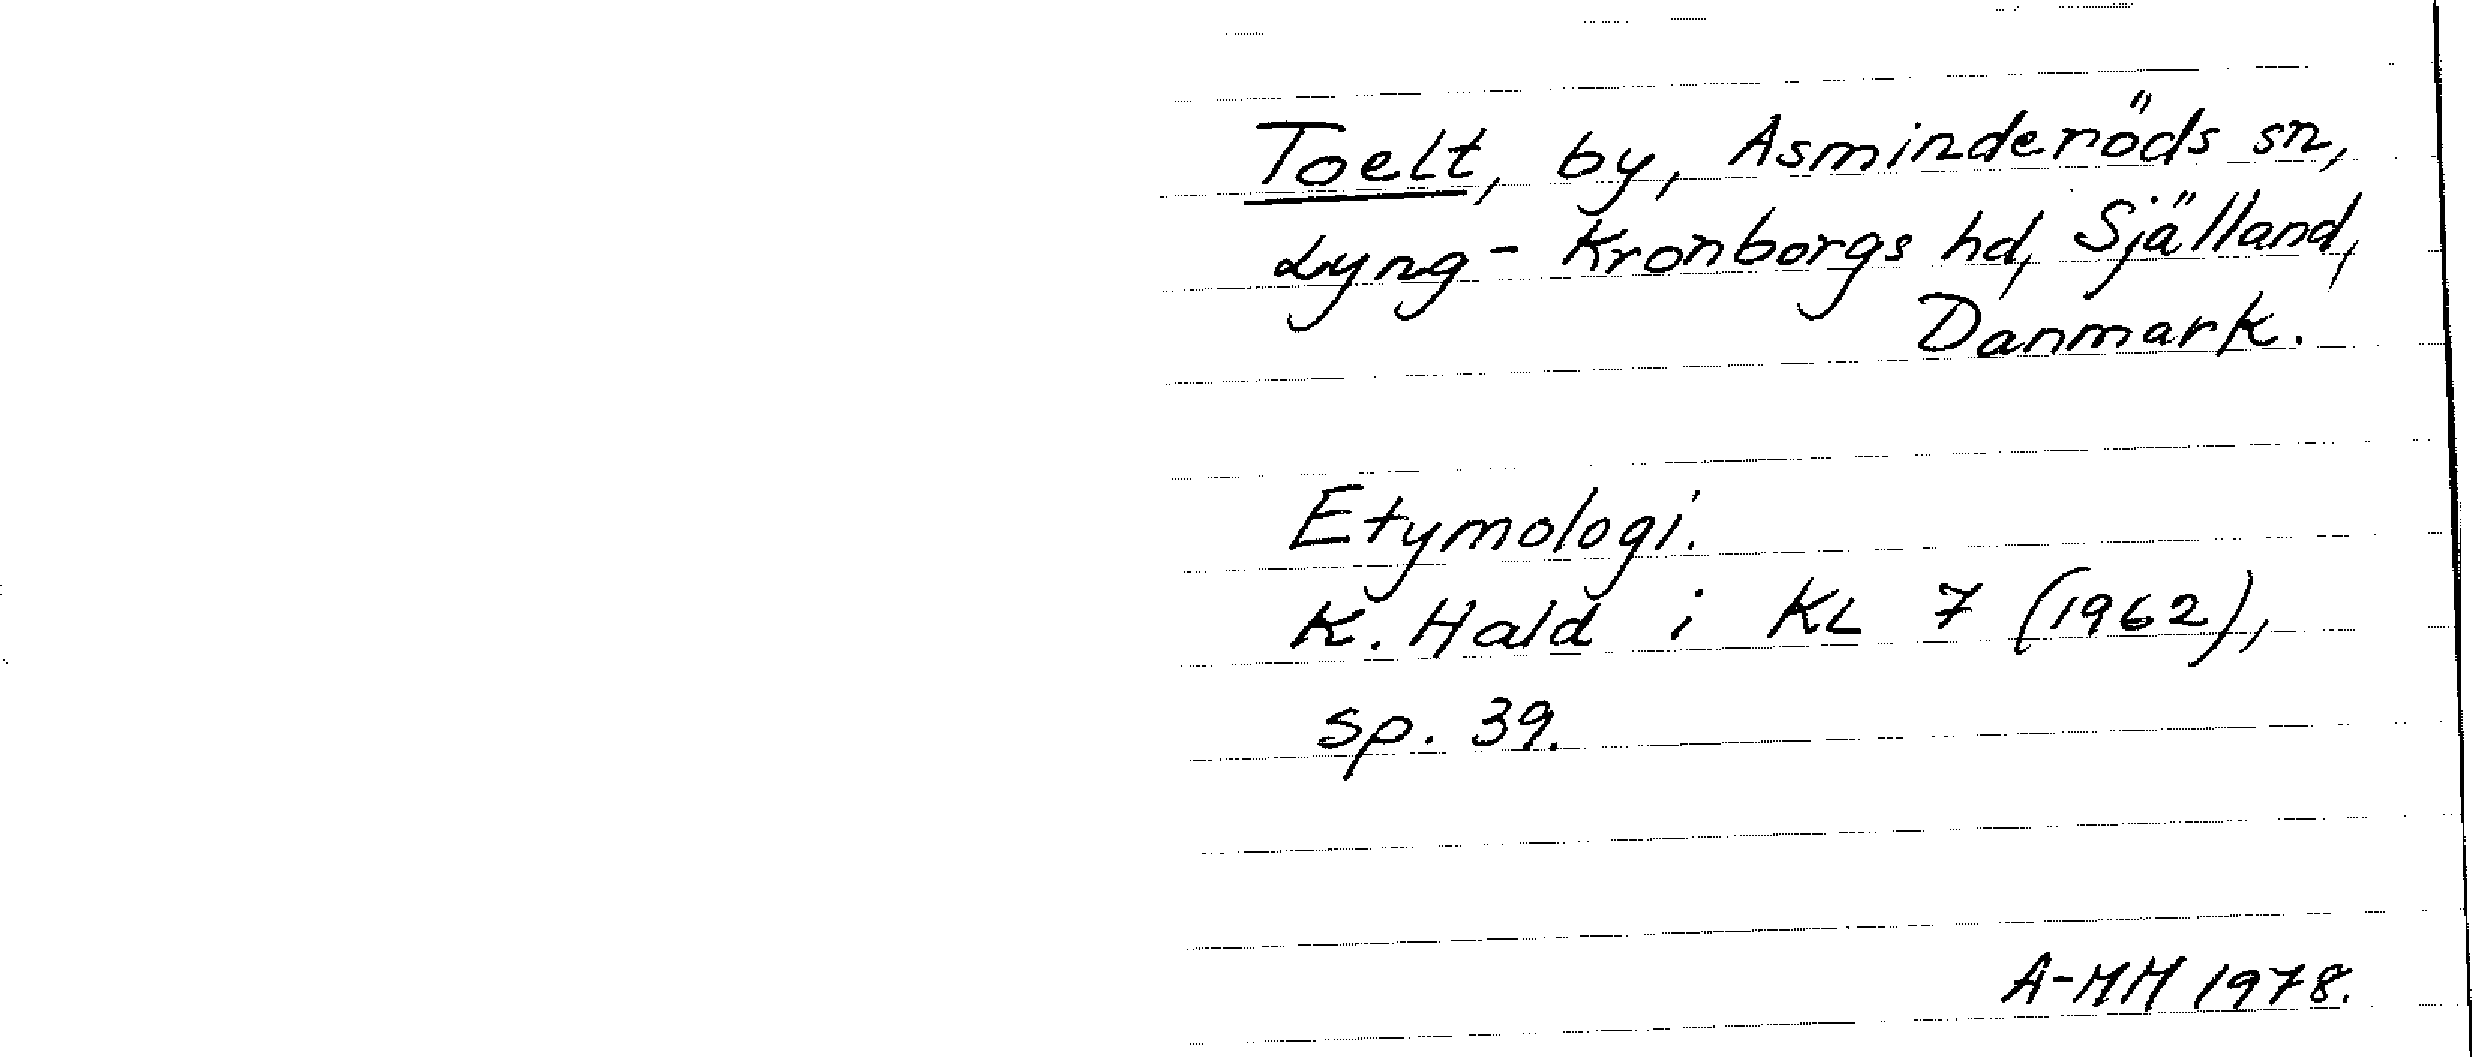 Toelt, by, Asminderöds sn,
Lyng-Kronborgs hd, Själland,
Danmark.
Etymologi.
K. Hald i KL 7 (1962),
sp. 39.
A-MH 1978.